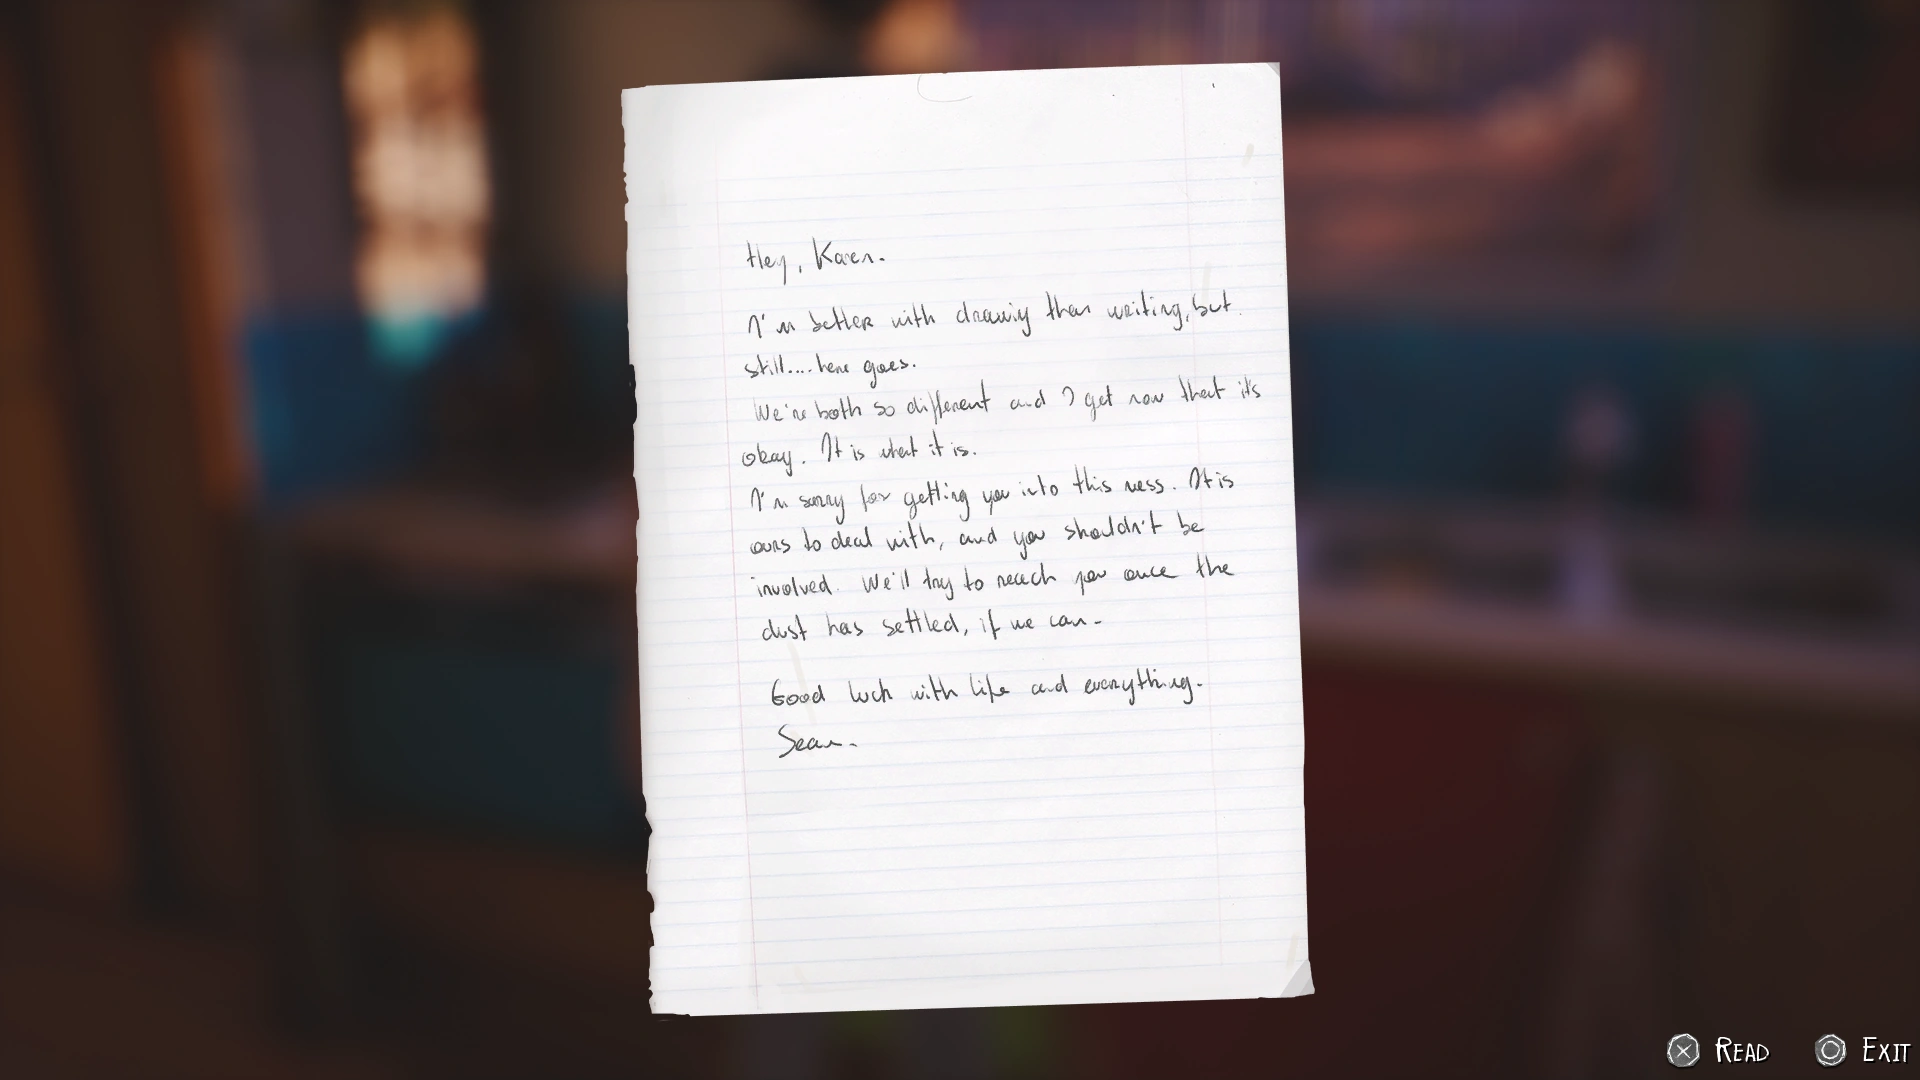 Hey, Karen.
I'm better with drawing than writing, but
still.... here goes.
We're both so different and I get now that it's
okay. It is what it is.
I'm sorry for getting you into this mess. It is
ours to deal with, and you shouldn't be
involved. We'll try to reach you once the
dust has settled, if we can.
Good luck with life and everything.
Sean.
READ EXIT